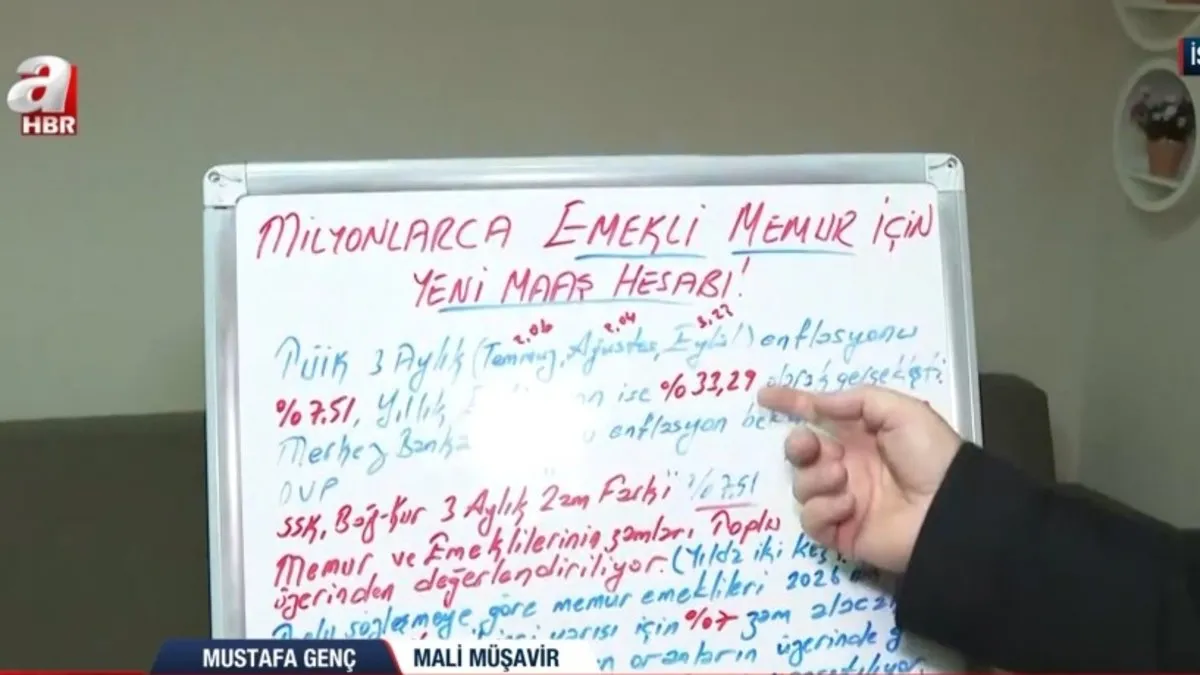 a
HBR
İS
MİLYONLARCA EMEKLİ MEMUR İÇİN
YENİ MAAŞ HESABI!
2,06 2,04 3,23
TÜİK 3 Aylık (Temmuz, Ağustos, Eylül) enflasyonu
%7.51, Yıllık ise %33,29 olarak gerçekleşti.
Merkez Banka enflasyon
OVP
SSK, Bağ-Kur 3 Aylık "Zam Farkı" %7.51
Memur ve Emeklilerinin zamları Toplu
üzerinden değerlendiriliyor. (Yılda iki kez
sözleşmeye göre memur emeklileri 2026
yarısı için %7 zam
oranların üzerinde
MUSTAFA GENÇ MALİ MÜŞAVİR